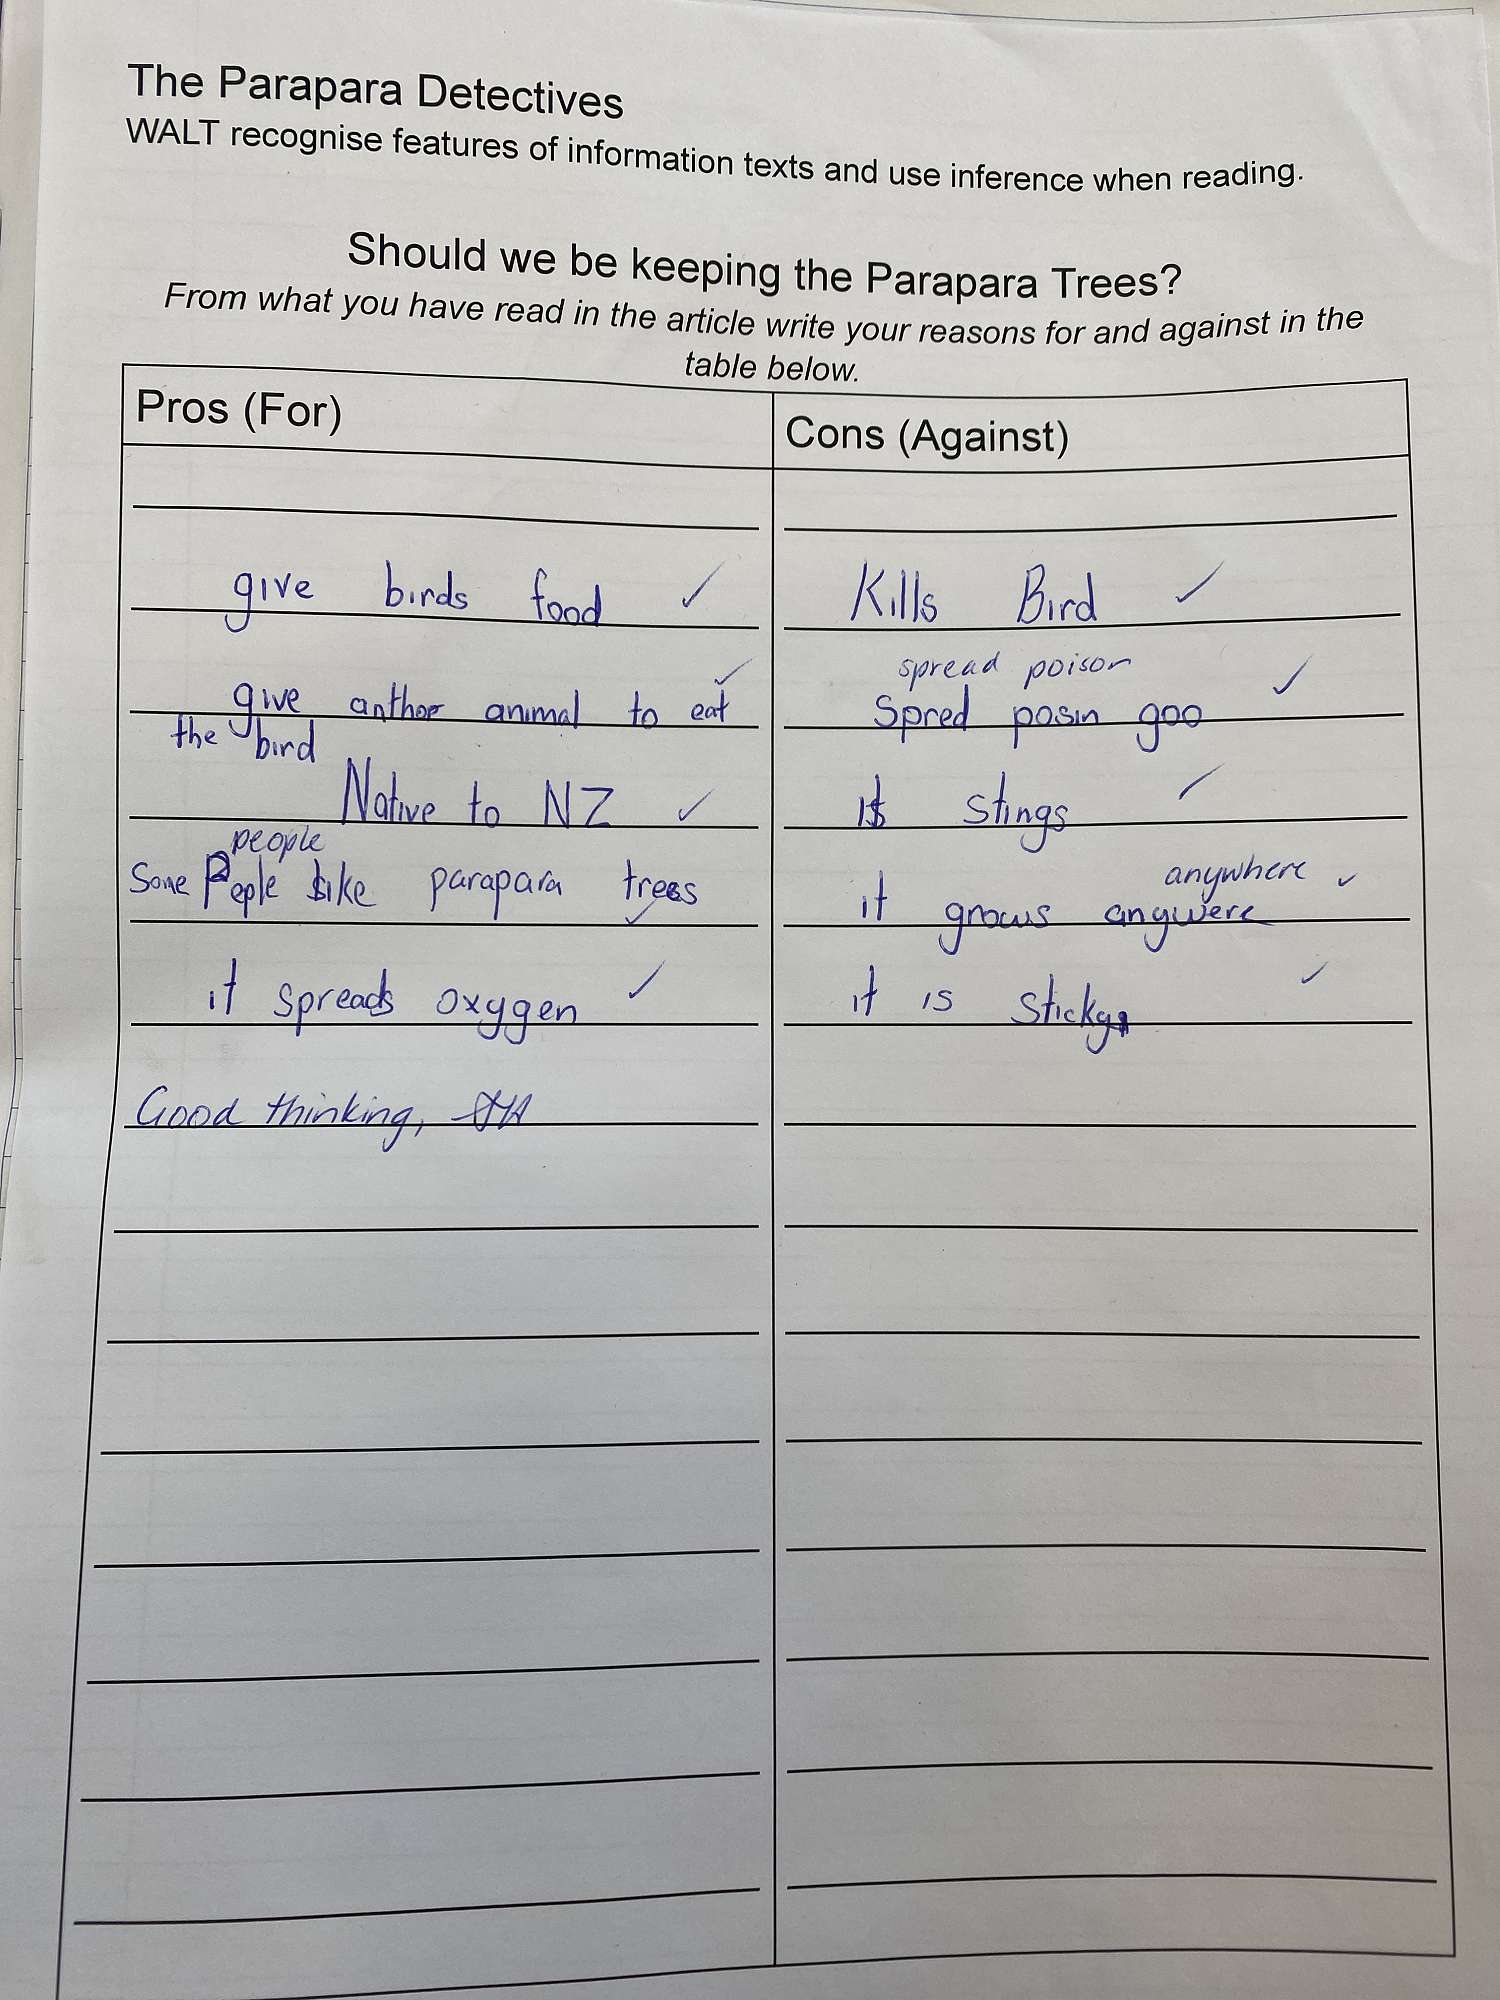 The Parapara Detectives
WALT recognise features of information texts and use inference when reading.
Should we be keeping the Parapara Trees?
From what you have read in the article write your reasons for and against in the
table below.
Pros (For)
give birds food ✓
give anthor animal to eat ✓
the bird
Native to NZ ✓
people
Some Peple like parapara trees ✓
it spreads oxygen ✓
Good thinking,
Cons (Against)
Kills Bird ✓
spread poison
Spred posin goo ✓
it stings ✓
anywhere ✓
it grows anywere
it is sticky ✓